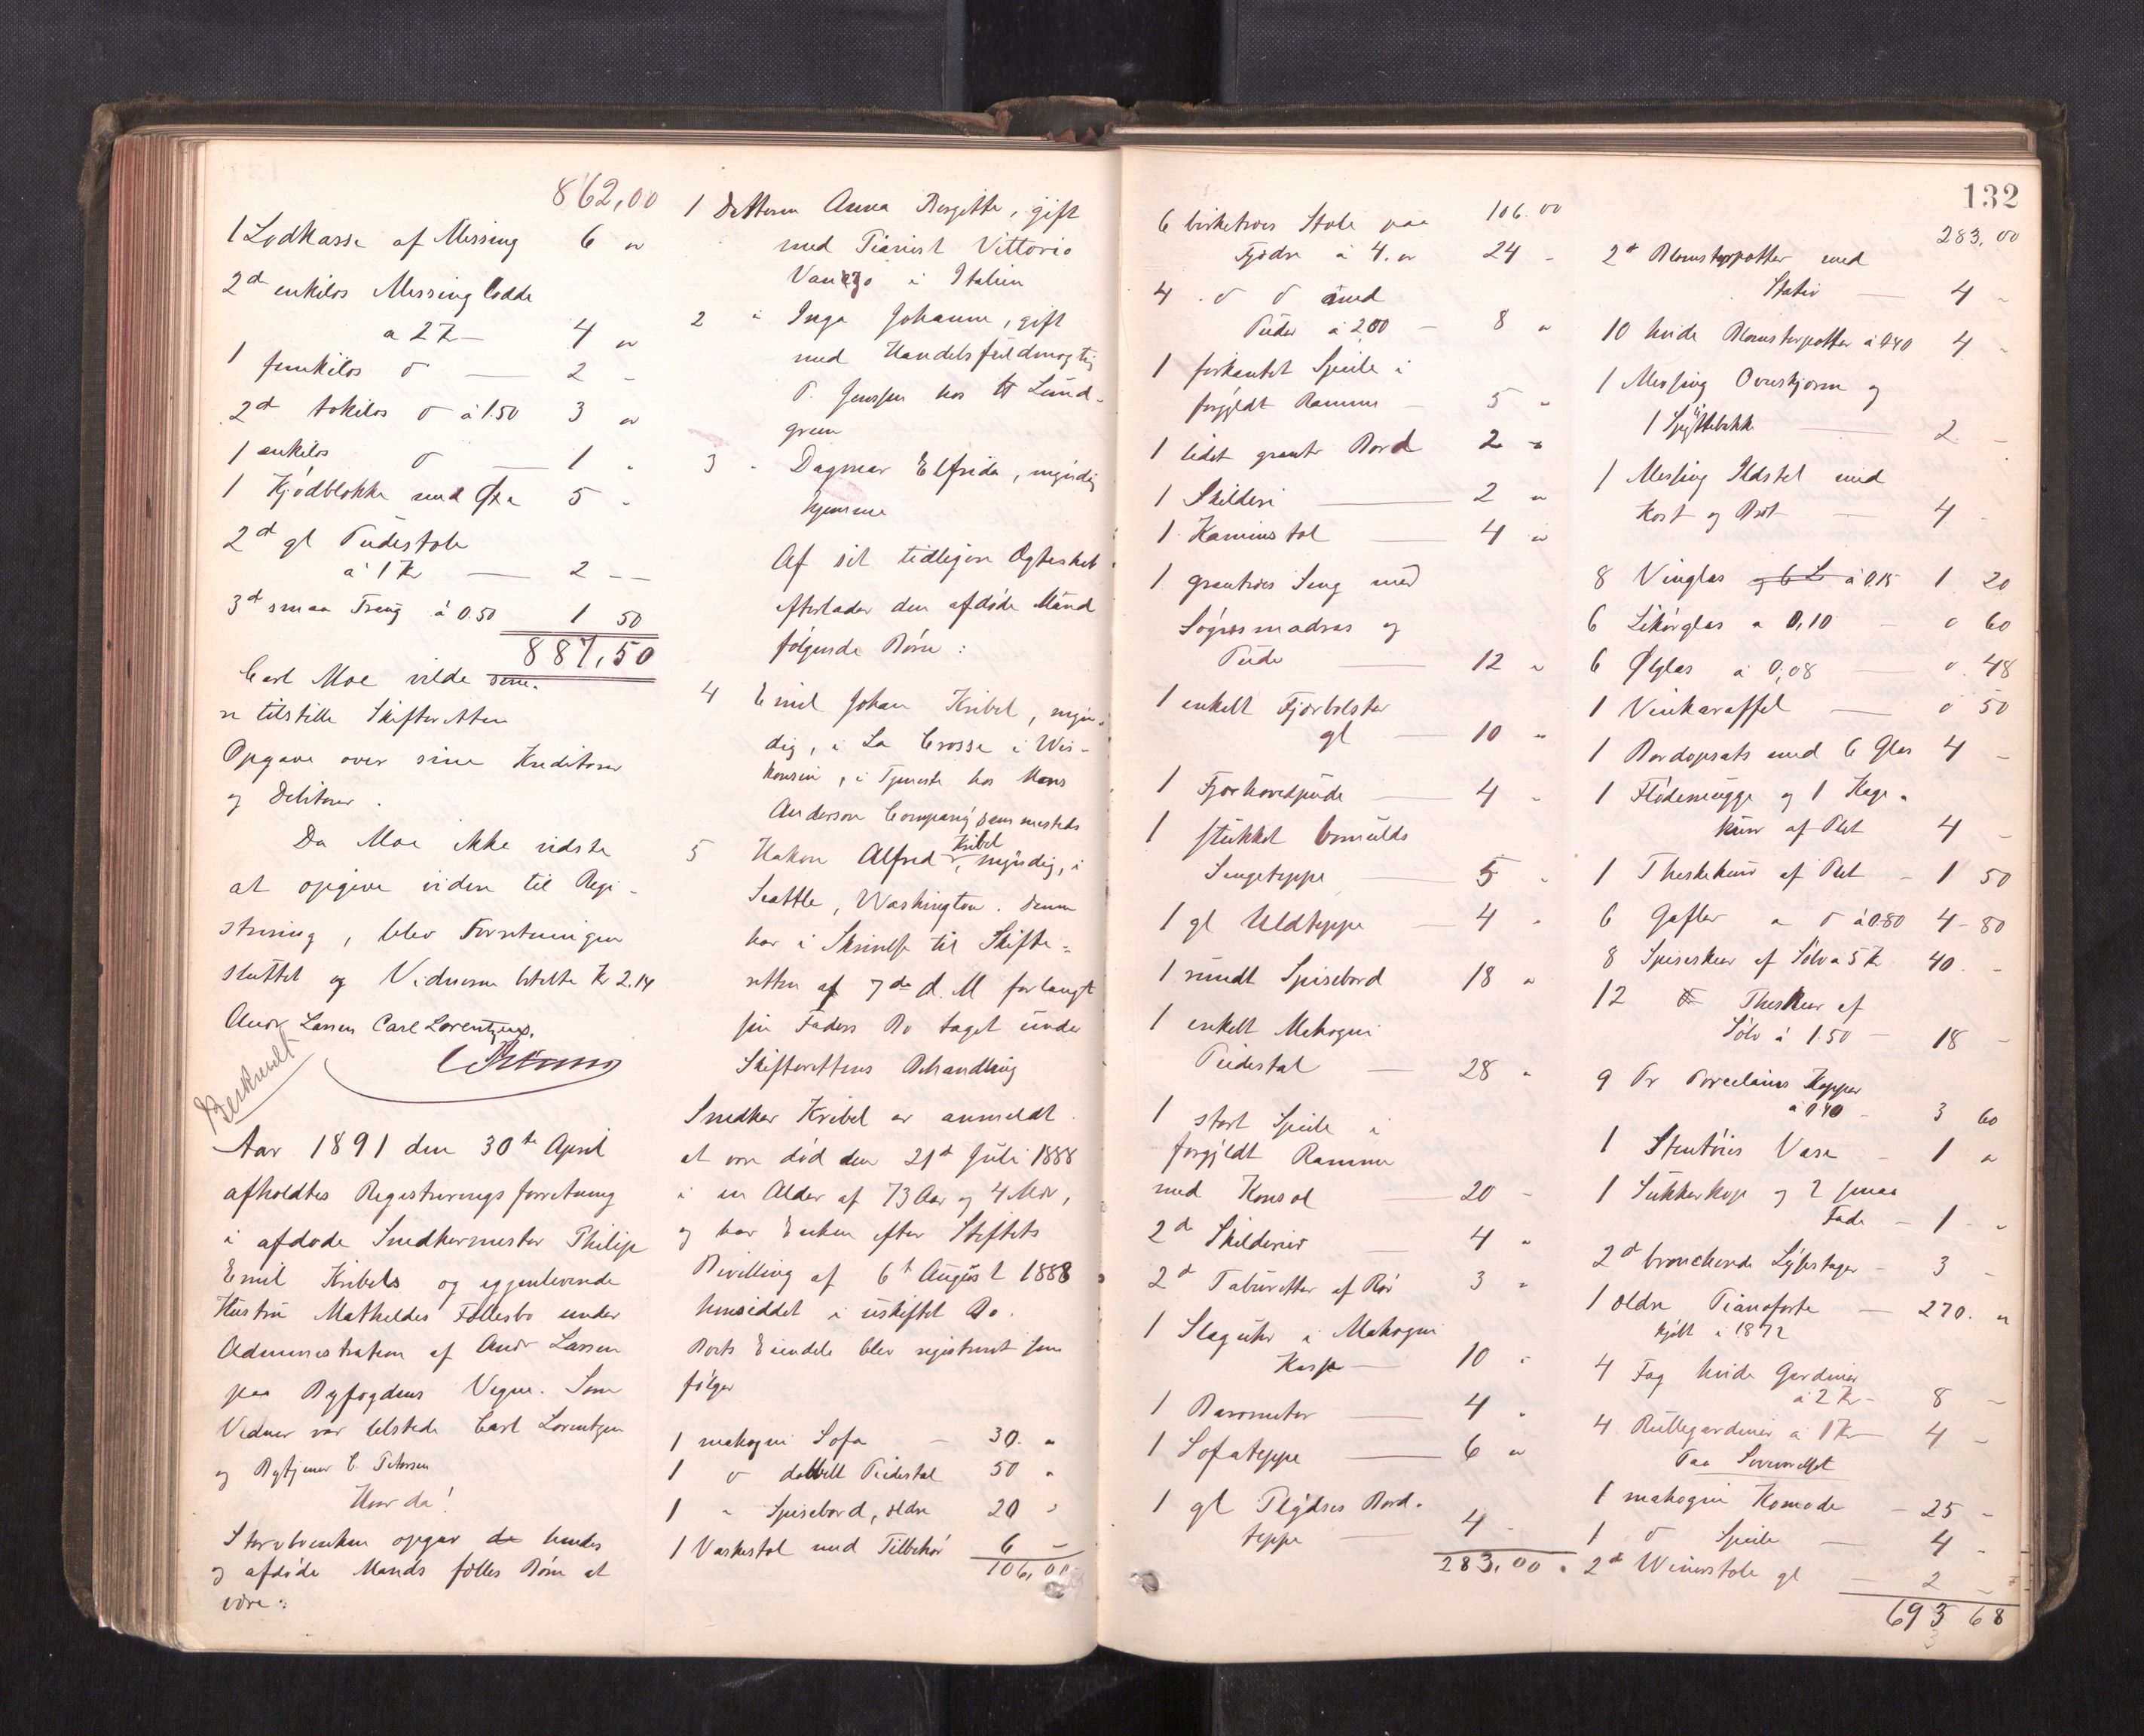 862,00
1 Lodkasse af Messing 6 „
2d enkilos Messing lodde
a 2 Kr — 4 „
1 femkilos d — 2 -
2d tokilos d á 1.50 3 „
1 enkilos d — 1 „
1 Kjödblokke med Öxe 5 -
2d gl Pudestole
á 1 Kr — 2 - -
3d smaa Traug á 0.50 1 50
887,50
Carl Moe vilde sene-
re tilstille Skifteretten
Opgave over sine Kreditorer
og Debitorer.
Da Moe ikke vidste
at opgive videre til Regi-
strering, blev Forretningen
sluttet og Vidnerne betalte Kr 2.14
Andr Larsen Carl Lorentzen.
Berkendt
Aar 1891 den 30te April
afholdtes Registreringsforretning
i afdøde Snedkermester Philip
Emil Kribels og egjenlevende
Hustru Matheldes Fællesbo under
Administration af Andr Larsen
paa Byfogdens Vegne. Som
Vidner var tilstede Carl Lorentzen
og Bytjener C. Petersen
Hvor da!
Stervboenken opgav hendes
og afdöde Mands fælles Börn at
være:
1 Datteren Anna Birgitte, gift
med Pianist Vittorio
Vanzo i Italien
2 " Inga Johanne, gift
med Handelsfuldmægtig
P. Jenssen hos Lund-
green
3 - Dagmar Elfrida, myndig
hjemme
Af sit tidligere Ægteskab
efterlader den afdöde Mand
fölgende Börn:
4 Emil Johan Kribel, myn-
dig, i La Crosse i Wis-
konsin, i Tjeneste hos Mons
Anderson Company sammesteds
5 Hakon Alfred Kribel, myndig, i
Seattle, Washington. Denne
har i Skrivelse til Skifte-
retten af 7de d. M forlangt
sin Faders Bo taget under
Skifterettens Behandling
Snedker Kribel er anmeldt
at være död den 21de Juli 1888
i en Alder af 73 Aar og 4 Mdr,
og har Enken efter Stiftets
Bevilling af 6te August 1888
hensiddet i uskiftet Bo.
Boets Eiendele blev registreret som
fölger
1 mahogni Sofa — 30. „
1 d dobbelt Pidestal 50 „
1 „ Spisebord, ældre 20 „
1 Vaskestol med Tilbehör 6 -
106,00
132
106.00
6 birketræs Stole paa
Fjödre á 4. „ 24 -
4 d d med
Puder á 2,00 — 8 „
1 firkantet Speile i
forgyldt Ramme — 5 „
1 lidet grantr Bord 2 „
1 Skilderi — 2 „
1 Kaminstol — 4 „
1 grantræs Seng med
Søgræsmadras og
Pude — 12 „
1 enkelt Fjærbolster
gl — 10 „
1 Fjærhovedpude — 4 -
1 stukket bomulds
Sengeteppe — 5 -
1 gl Uldteppe — 4 -
1 rundt Spisebord 18 „
1 enkelt Mahogni
Pidestal — 28 „
1 stort Speile i
forgyldt Ramme
med Konsol — 20 -
2de Skilderier — 4 „
2d Taburetter af Rör 3 „
1 Slaguhr i Mahogni
Kasse — 10 „
1 Barometer — 4 „
1 Sofateppe — 6 „
1 gl Plydses Bord-
teppe — 4 -
283,00
283,00
2d Blomsterpotter med
Stativ — 4 -
10 hvide Blomsterpotter á 0.40 4 -
1 Messing Ovnskjerm og
1 Spyttebakke — 2 -
1 Messing Ildstel med
Kost og Bræt — 4 -
8 Vinglas á 0.15 1 20
6 Likörglas a 0,10 - „ 60
6 Ølglas a 0,08 — „ 48
1 Vinkaraffel — „ 50
1 Bordopsats med 6 Glas 4 -
1 Flödemugge og 1 Kage-
kurv af Plet 4 -
1 Theskekurv af Plet - 1 50
6 Gafler a d á 0.80 4 - 80
8 Spiseskeer af Sölv a 5 Kr 40. -
12 Theskeer af
Sölv á 1.50 — 18 -
9 Pr Porcelains Kopper
á 0.40 - 3 60
1 Stentöis Vase - 1 „
1 Sukkerkop og 2 smaa
Fade - 1 „
2d broncherede Lysestager - 3 -
1 ældre Pianoforte — 270. „
kjöbt i 1872
4 Fag hvide Gardiner
á 2 Kr - 8 -
4 Rullegardiner á 1 Kr - 4 -
Paa Soveværelset
1 mahogni Komode - 25 -
1 d Speile — 4 -
2d Wienerstole gl — 2 -
693 68